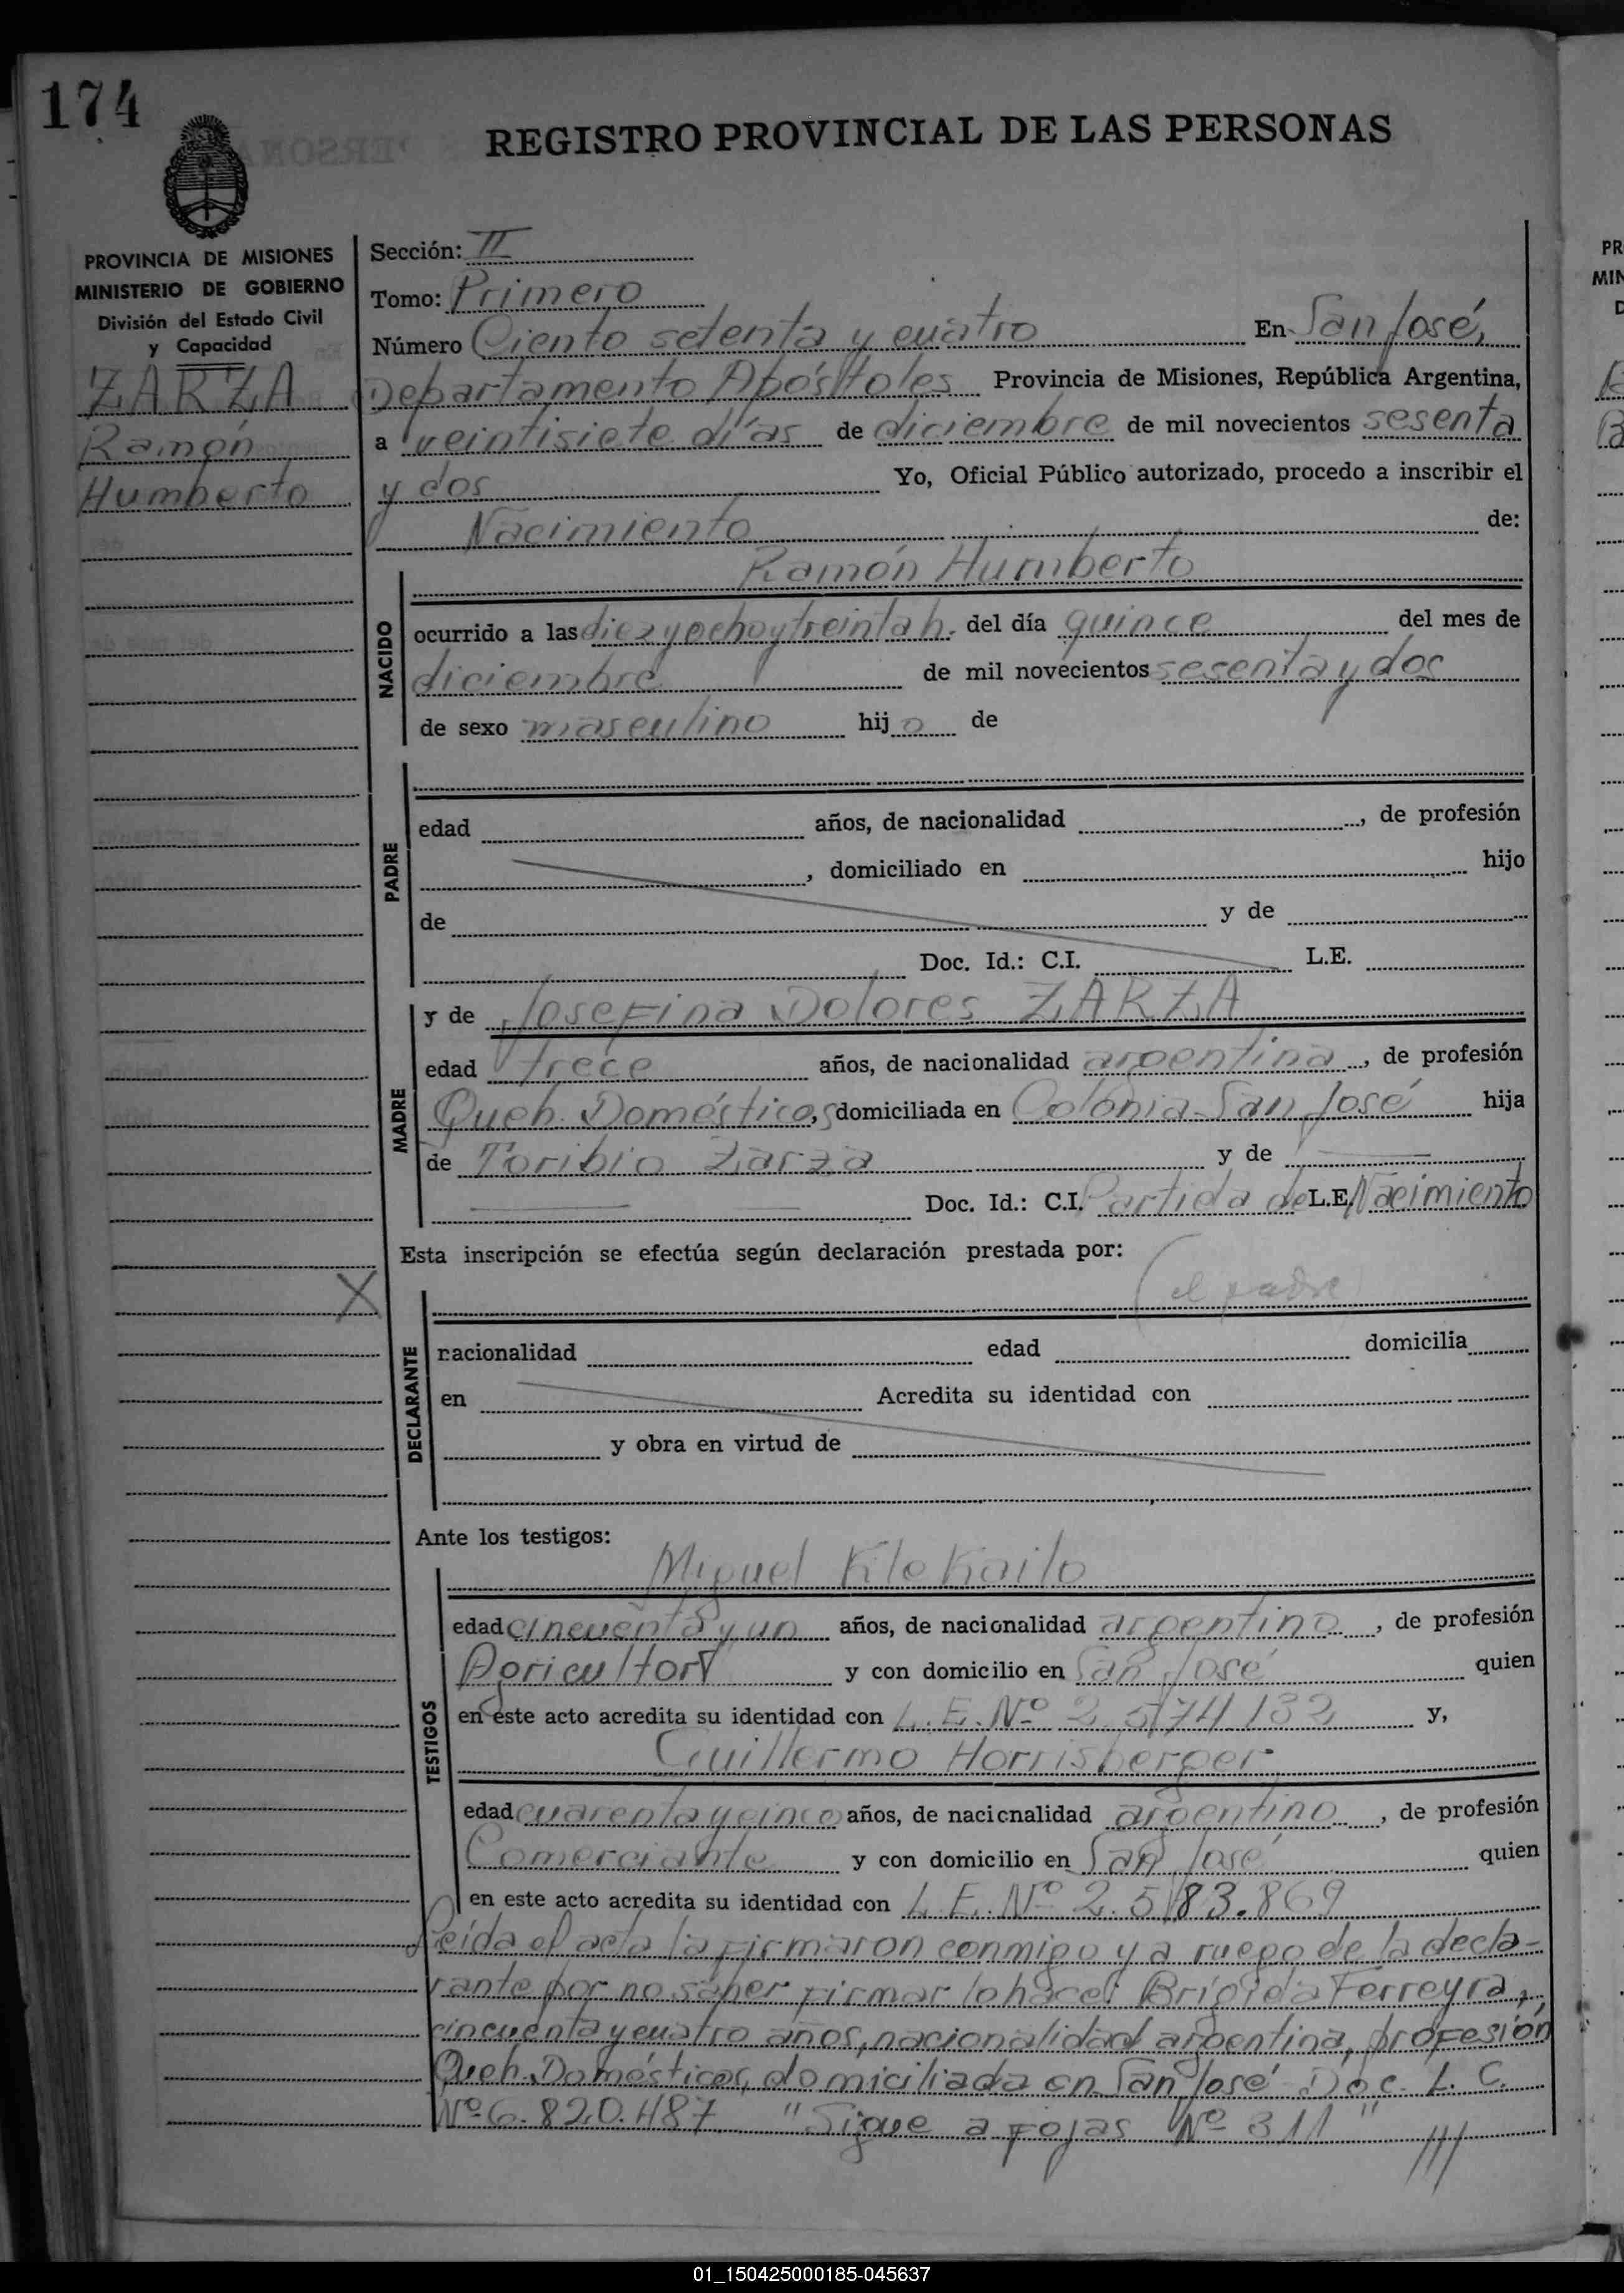 174
REGISTRO PROVINCIAL DE LAS PERSONAS
PROVINCIA DE MISIONES
MINISTERIO DE GOBIERNO
División del Estado Civil
y Capacidad
ZARZA
Ramón
Humberto
Sección: II
Tomo: Primero
Número Ciento setenta y cuatro En San José,
Departamento Apóstoles Provincia de Misiones, República Argentina,
a veintisiete días de diciembre de mil novecientos sesenta
y dos Yo, Oficial Público autorizado, procedo a inscribir el
Nacimiento de:
Ramón Humberto
NACIDO
ocurrido a las diez y ocho y treinta h. del día quince del mes de
diciembre de mil novecientos sesenta y dos
de sexo masculino hijo de
PADRE
edad años, de nacionalidad , de profesión
, domiciliado en hijo
de y de
Doc. Id.: C.I. L.E.
MADRE
y de Josefina Dolores ZARZA
edad trece años, de nacionalidad argentina, de profesión
Queh. Domésticos, domiciliada en Colonia San José hija
de Toribio Zarza y de
Doc. Id.: C.I. Partida de L.E. Nacimiento
Esta inscripción se efectúa según declaración prestada por:
(el padre)
DECLARANTE
nacionalidad edad domicilia
en Acredita su identidad con
y obra en virtud de
Ante los testigos:
TESTIGOS
Miguel Klekailo
edad cincuenta y un años, de nacionalidad argentino, de profesión
Agricultor y con domicilio en San José quien
en este acto acredita su identidad con L.E. Nº 2.574.132 y,
Guillermo Horrisberger
edad cuarenta y cinco años, de nacionalidad argentino, de profesión
Comerciante y con domicilio en San José quien
en este acto acredita su identidad con L.E. Nº 2.583.869
Leída el acta la firmaron conmigo y a ruego de la decla-
rante por no saber firmar lo hace Brígida Ferreyra,
cincuenta y cuatro años, nacionalidad argentina, profesión
Queh. Domésticos, domiciliada en San José Doc. L. C.
Nº 6.820.487 "Sigue a fojas Nº 311" ///
PR
MIN
D
01_150425000185-045637